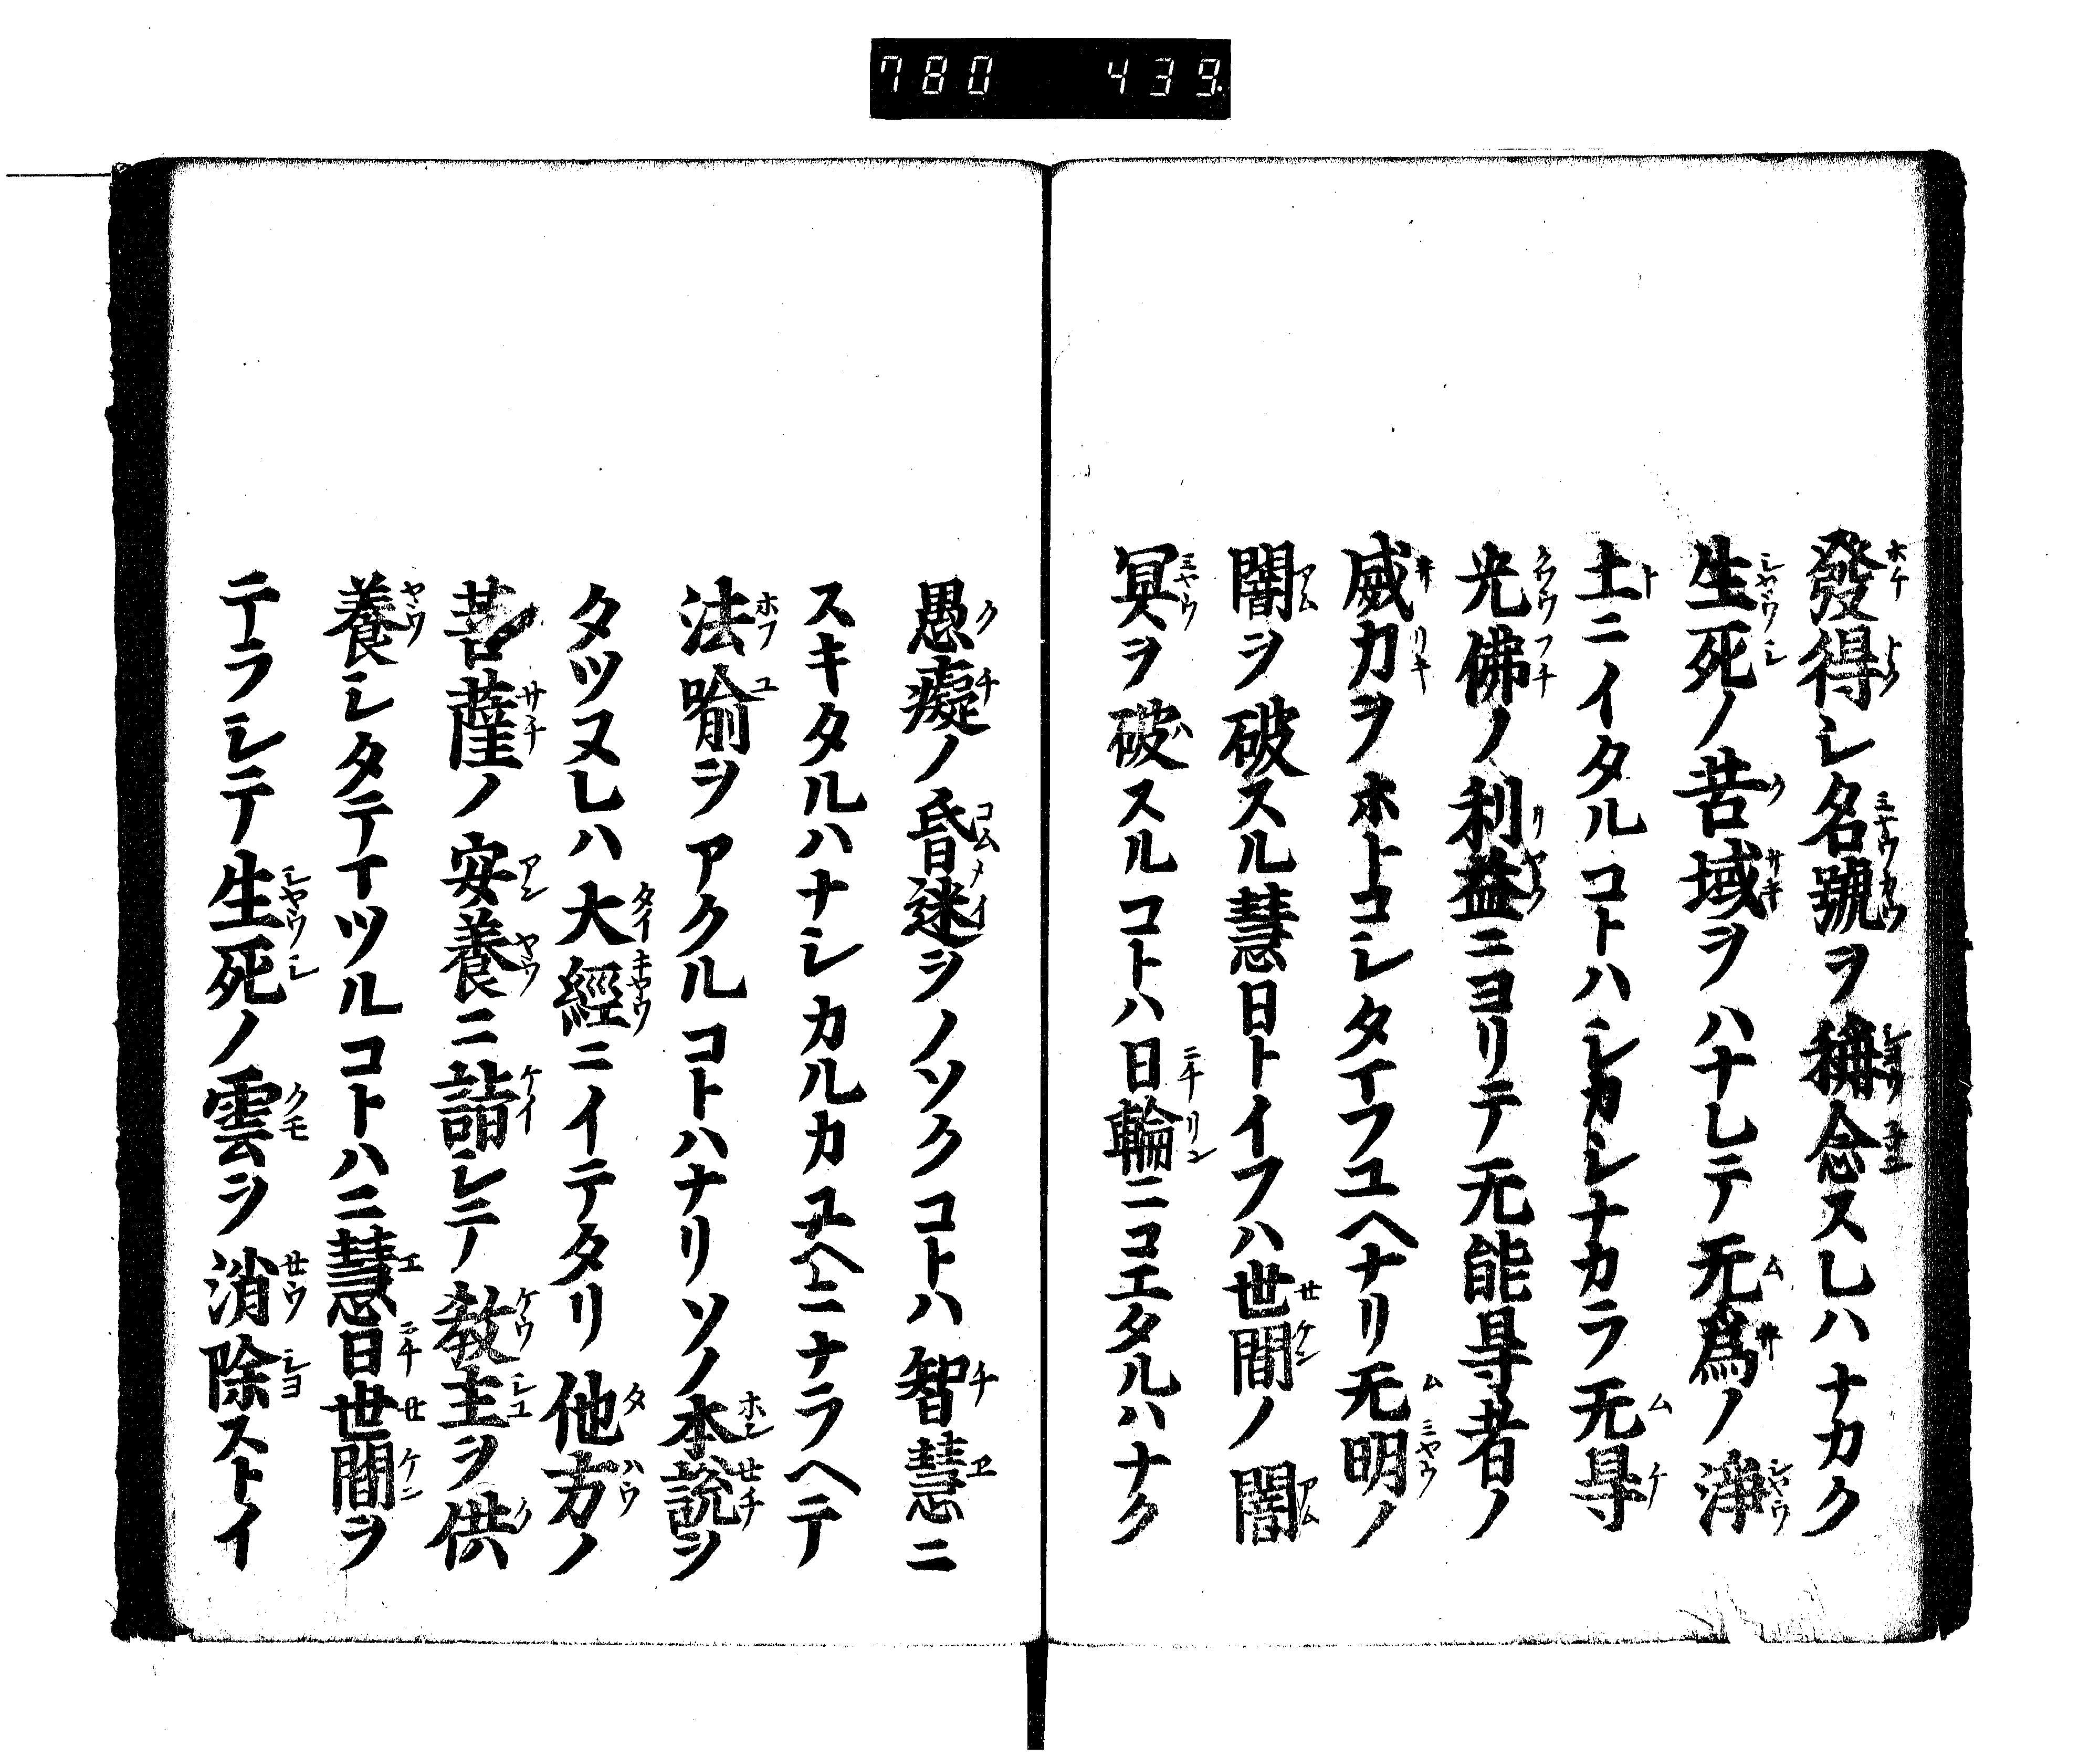 780 439
發得シ名號ヲ稱念スレハナカク
生死ノ苦域ヲハナレテ无爲ノ淨
土ニイタルコトハシカシナカラ无㝵
光佛ノ利益ニヨリテ无能㝵者ノ
威力ヲホトコシタイフユヘナリ无明ノ
闇ヲ破スル慧日トイフハ世間ノ闇
冥ヲ破スルコトハ日輪ニコエタルハナク
愚癡ノ昏迷ヲノソクコトハ智慧ニ
スキタルハナシカルカユヘニナラヘテ
法喩ヲアクルコトハナリソノ本說ヲ
タツヌレハ大經ニイテタリ他方ノ
菩薩ノ安養ニ詣シテ敎主ヲ供
養シタテイツルコトハニ慧日世間ヲ
テラシテ生死ノ雲ヲ消除ストイ